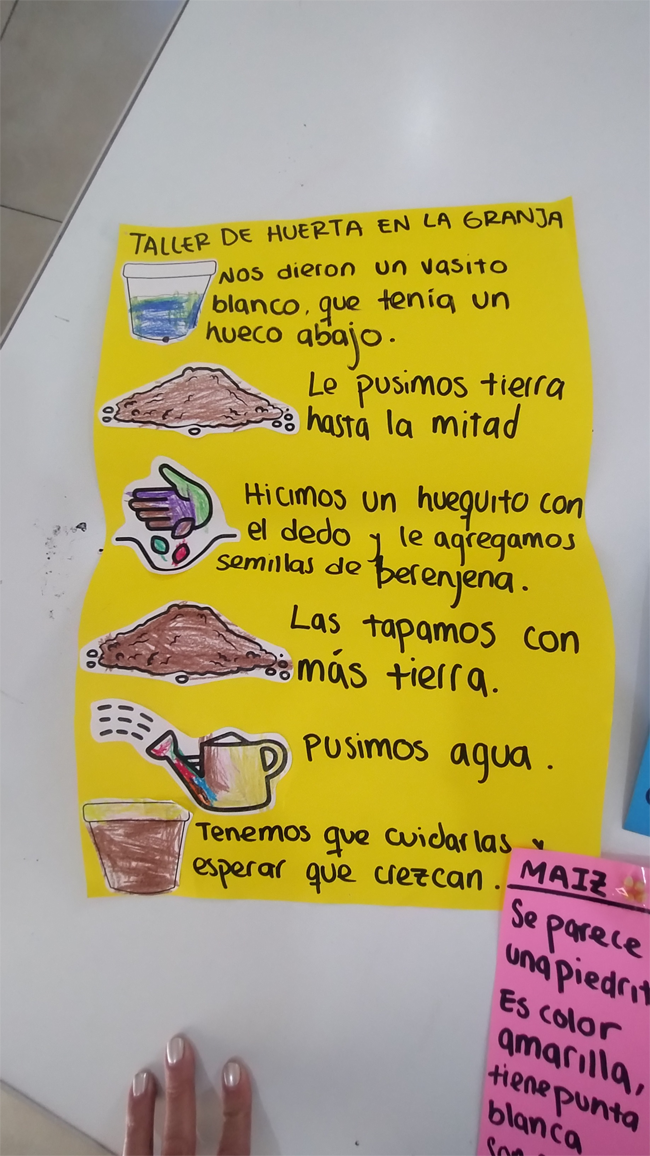 TALLER DE HUERTA EN LA GRANJA
Nos dieron un vasito
blanco, que tenía un
hueco abajo.
Le pusimos tierra
hasta la mitad
Hicimos un huequito con
el dedo y le agregamos
semillas de berenjena.
Las tapamos con
más tierra.
Pusimos agua.
Tenemos que cuidarlas y
esperar que crezcan.
MAIZ
Se parece
una piedrit
Es color
amarilla,
tiene punta
blanca